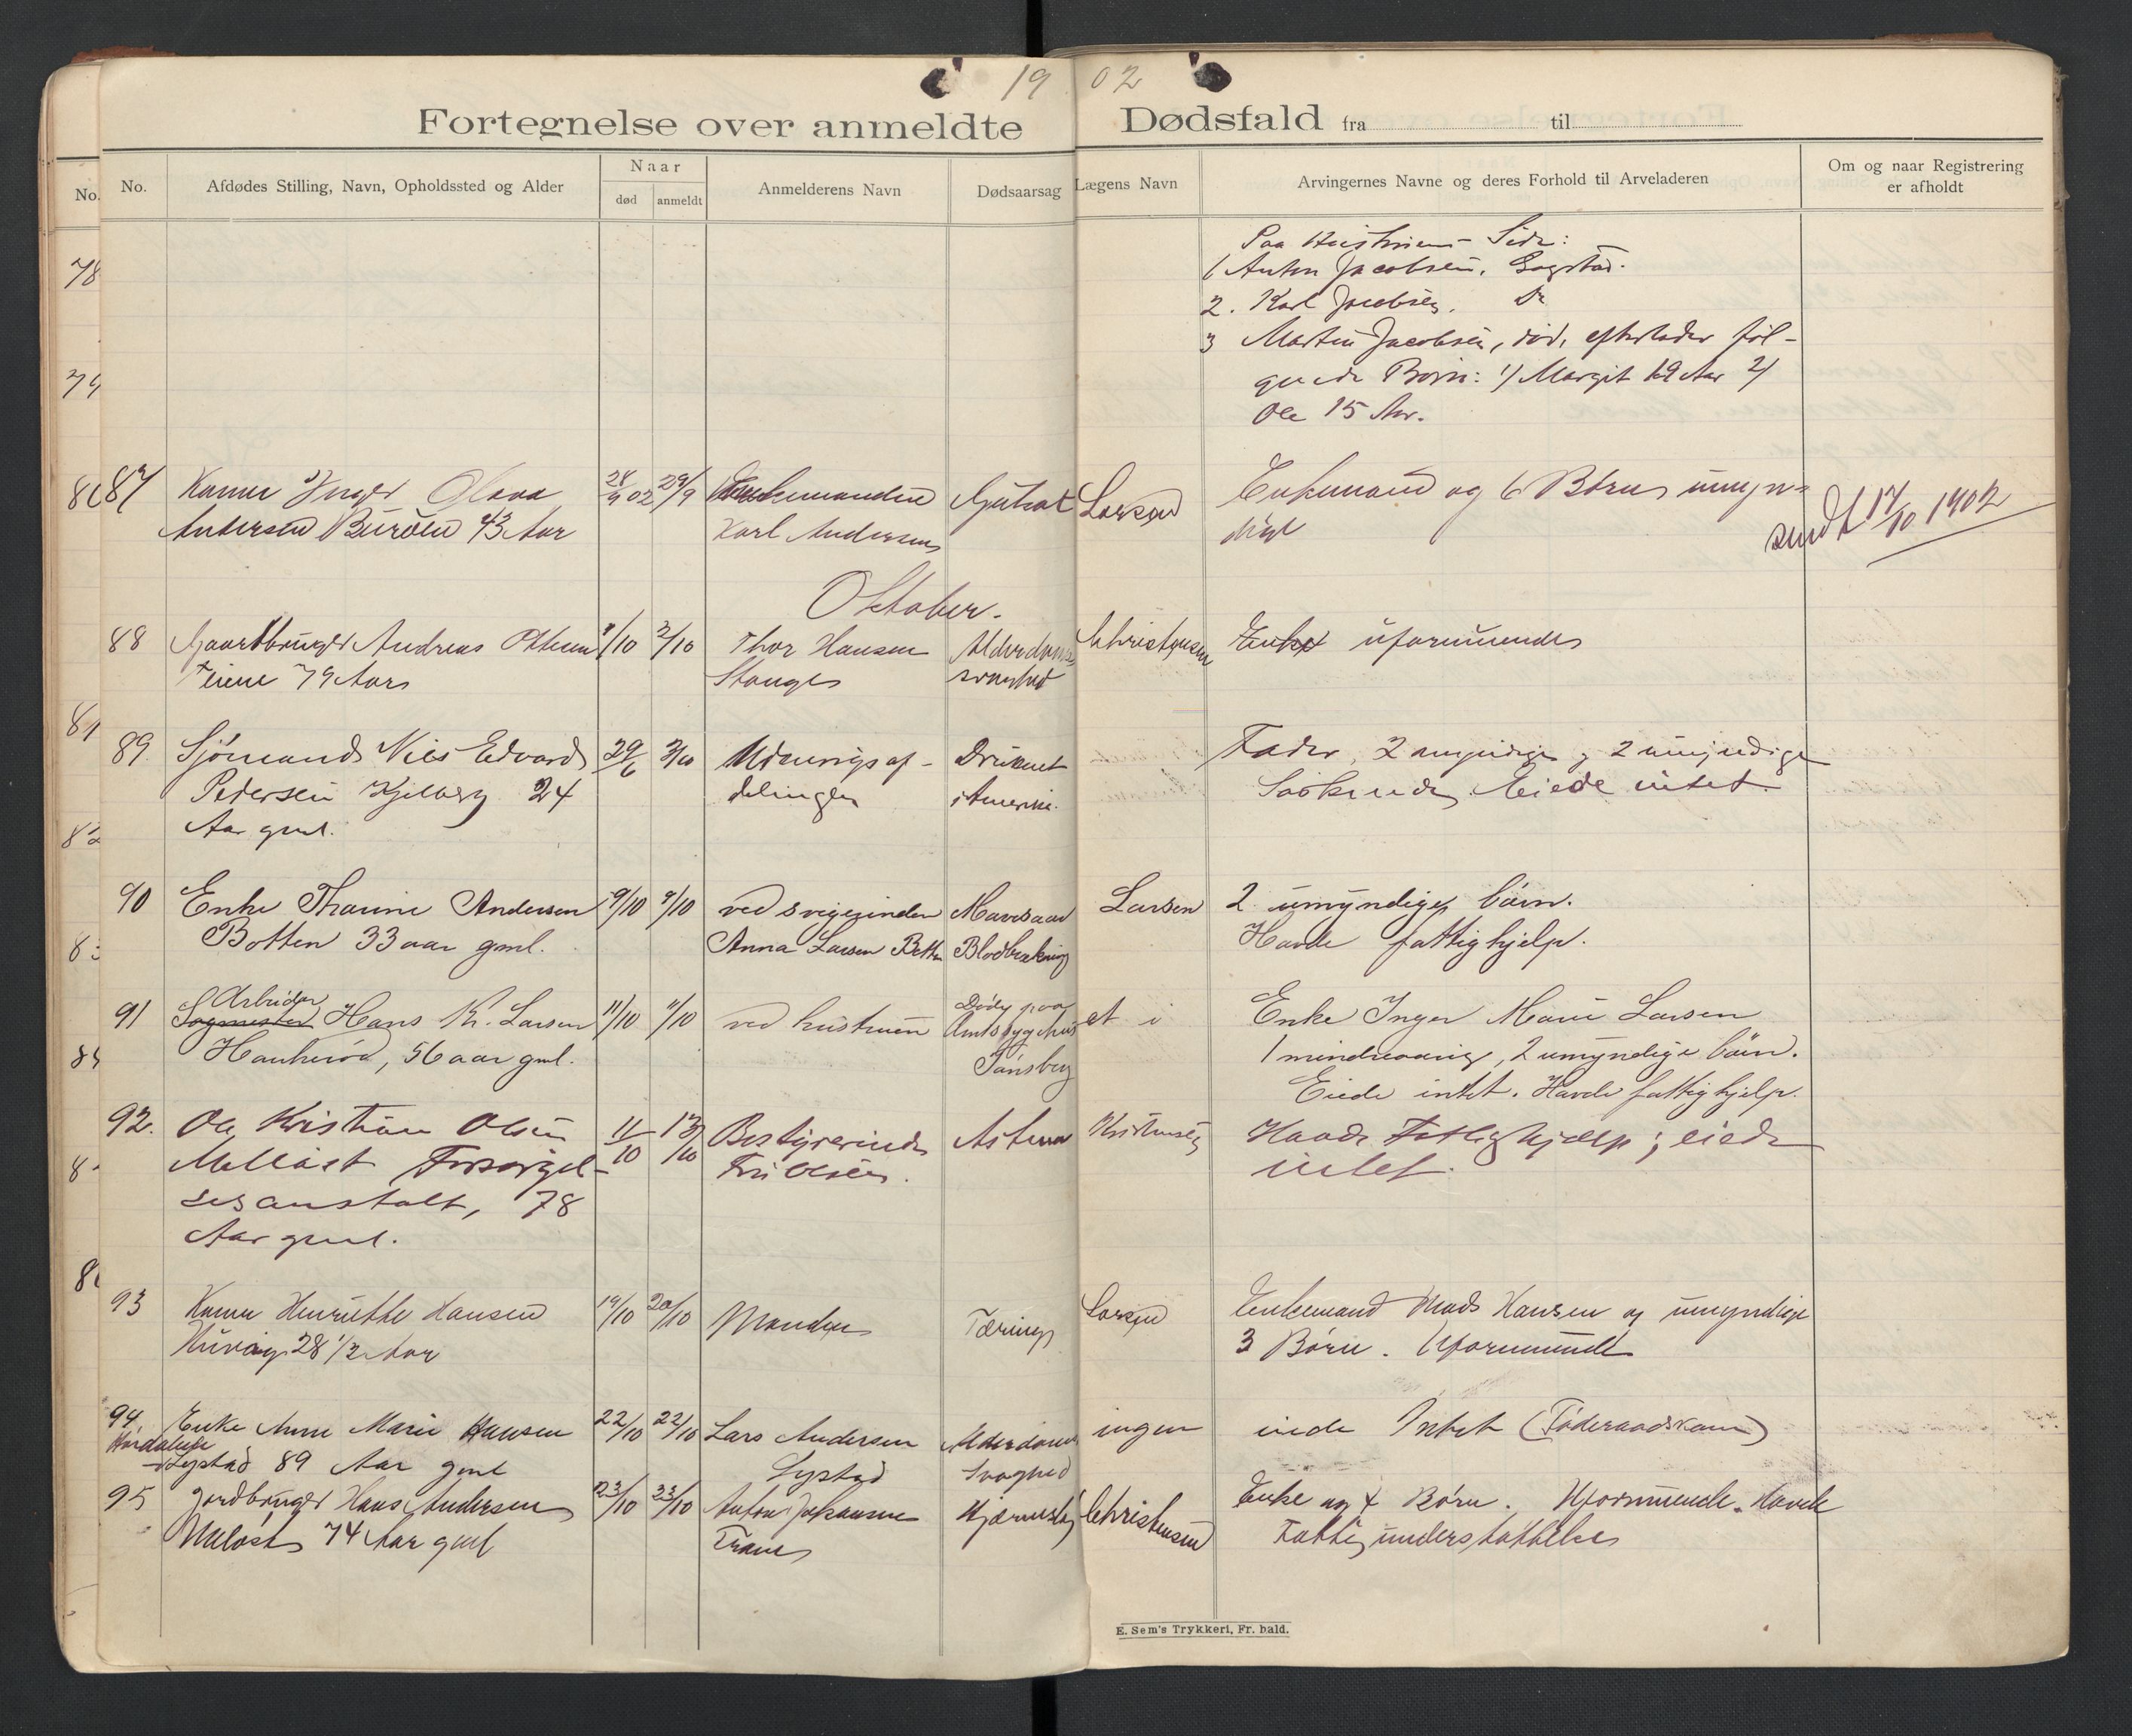 1902
Fortegnelse over anmeldte Dødsfald fra til
No.
No.
Afdødes Stilling, Navn, Opholdssted og Alder
Naar
død
anmeldt
Anmelderens Navn
Dødsaarsag
Lægens Navn
Arvingernes Navne og deres Forhold til Arveladeren
Om og naar Registrering
er afholdt
78
79
81
Paa Side:
1 Anton Jacobsen,
2. Karl Jacobsen. Do
3 Martin Jacobsen, død, efterlader føl-
gende Børn: 1/ Margit 19 Aar 2/
Ole 15 Aar.
87 Kone Inger Olava 28/9 02 29/9 Enkemanden Larsen Enkemand og 6 Børn umyn-
Andersen 43 Aar Karl Andersen dige
sendt 17/10 1902
Oktober.
88 Gaardbruger Andreas 1/10 2/10 Thor Hansen Alderdoms Christensen Enke uformuende
79 Aar Stange svaghed
89. Sjømand Nils Edvard 29/6 3/10 Druknet Fader, 2 myndige og 2 umyndige
Pedersen Kjelberg 24 delingen i Amerika. Søskende, Eiede intet.
Aar gml.
90 Enke Thorine Andersen 9/10 9/10 ved svigerinden Mavesaar Larsen 2 umyndige børn.
Botten 33 aar gml. Anna Larsen Botten Blodbrækning Havde fattighjelp.
Arbeider
91 Sagmester Hans K. Larsen 11/10 11/10 ved hustruen Døde paa Amtssygehuset i Enke Inger Marie Larsen
56 aar gml. Tønsberg 1 mindreaarig, 2 umyndige børn.
Eiede intet. Havde fattighjelp.
92. Ole Kristian Olsen 11/10 13/10 Bestyrerinde Astma Kristensen Havde Fattighjælp; eiede
Melløst Forsørgel- Fru Olsen. intet.
sesanstalt, 78
Aar gml.
93 Kone Henriette Hansen 19/10 20/10 Manden Tæring Larsen Enkemand Mads Hansen og umyndige
Huvig 28 1/2 Aar 3 Børn. Uformuende
94. Enke Anne Marie Hansen 22/10 22/10 Lars Andersen Alderdoms ingen eiede Intet (Føderaadskone)
Lystad 89 Aar gml Lystad Svaghed
95 Jordbruger Hans Andersen 23/10 23/10 Anton Johansen Hjerneslag Christensen Enke og 4 Børn. Uformuende. Havde
74 Aar gml Fattigunderstøttelse
E. Sem's Trykkeri, Fr. hald.